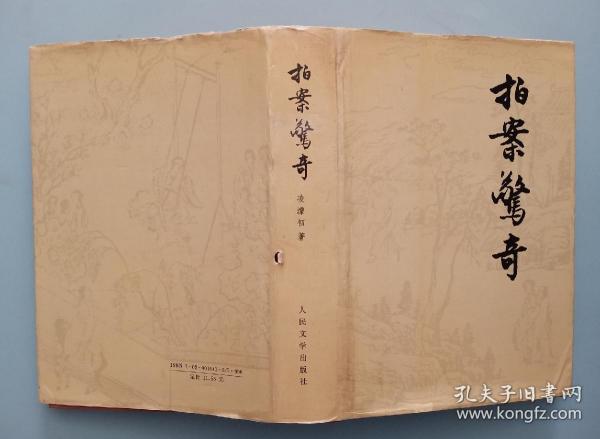 拍案驚奇
拍案驚奇
凌濛初著
人民文学出版社
定价 11.55 元
孔夫子旧书网
www.kongfz.com